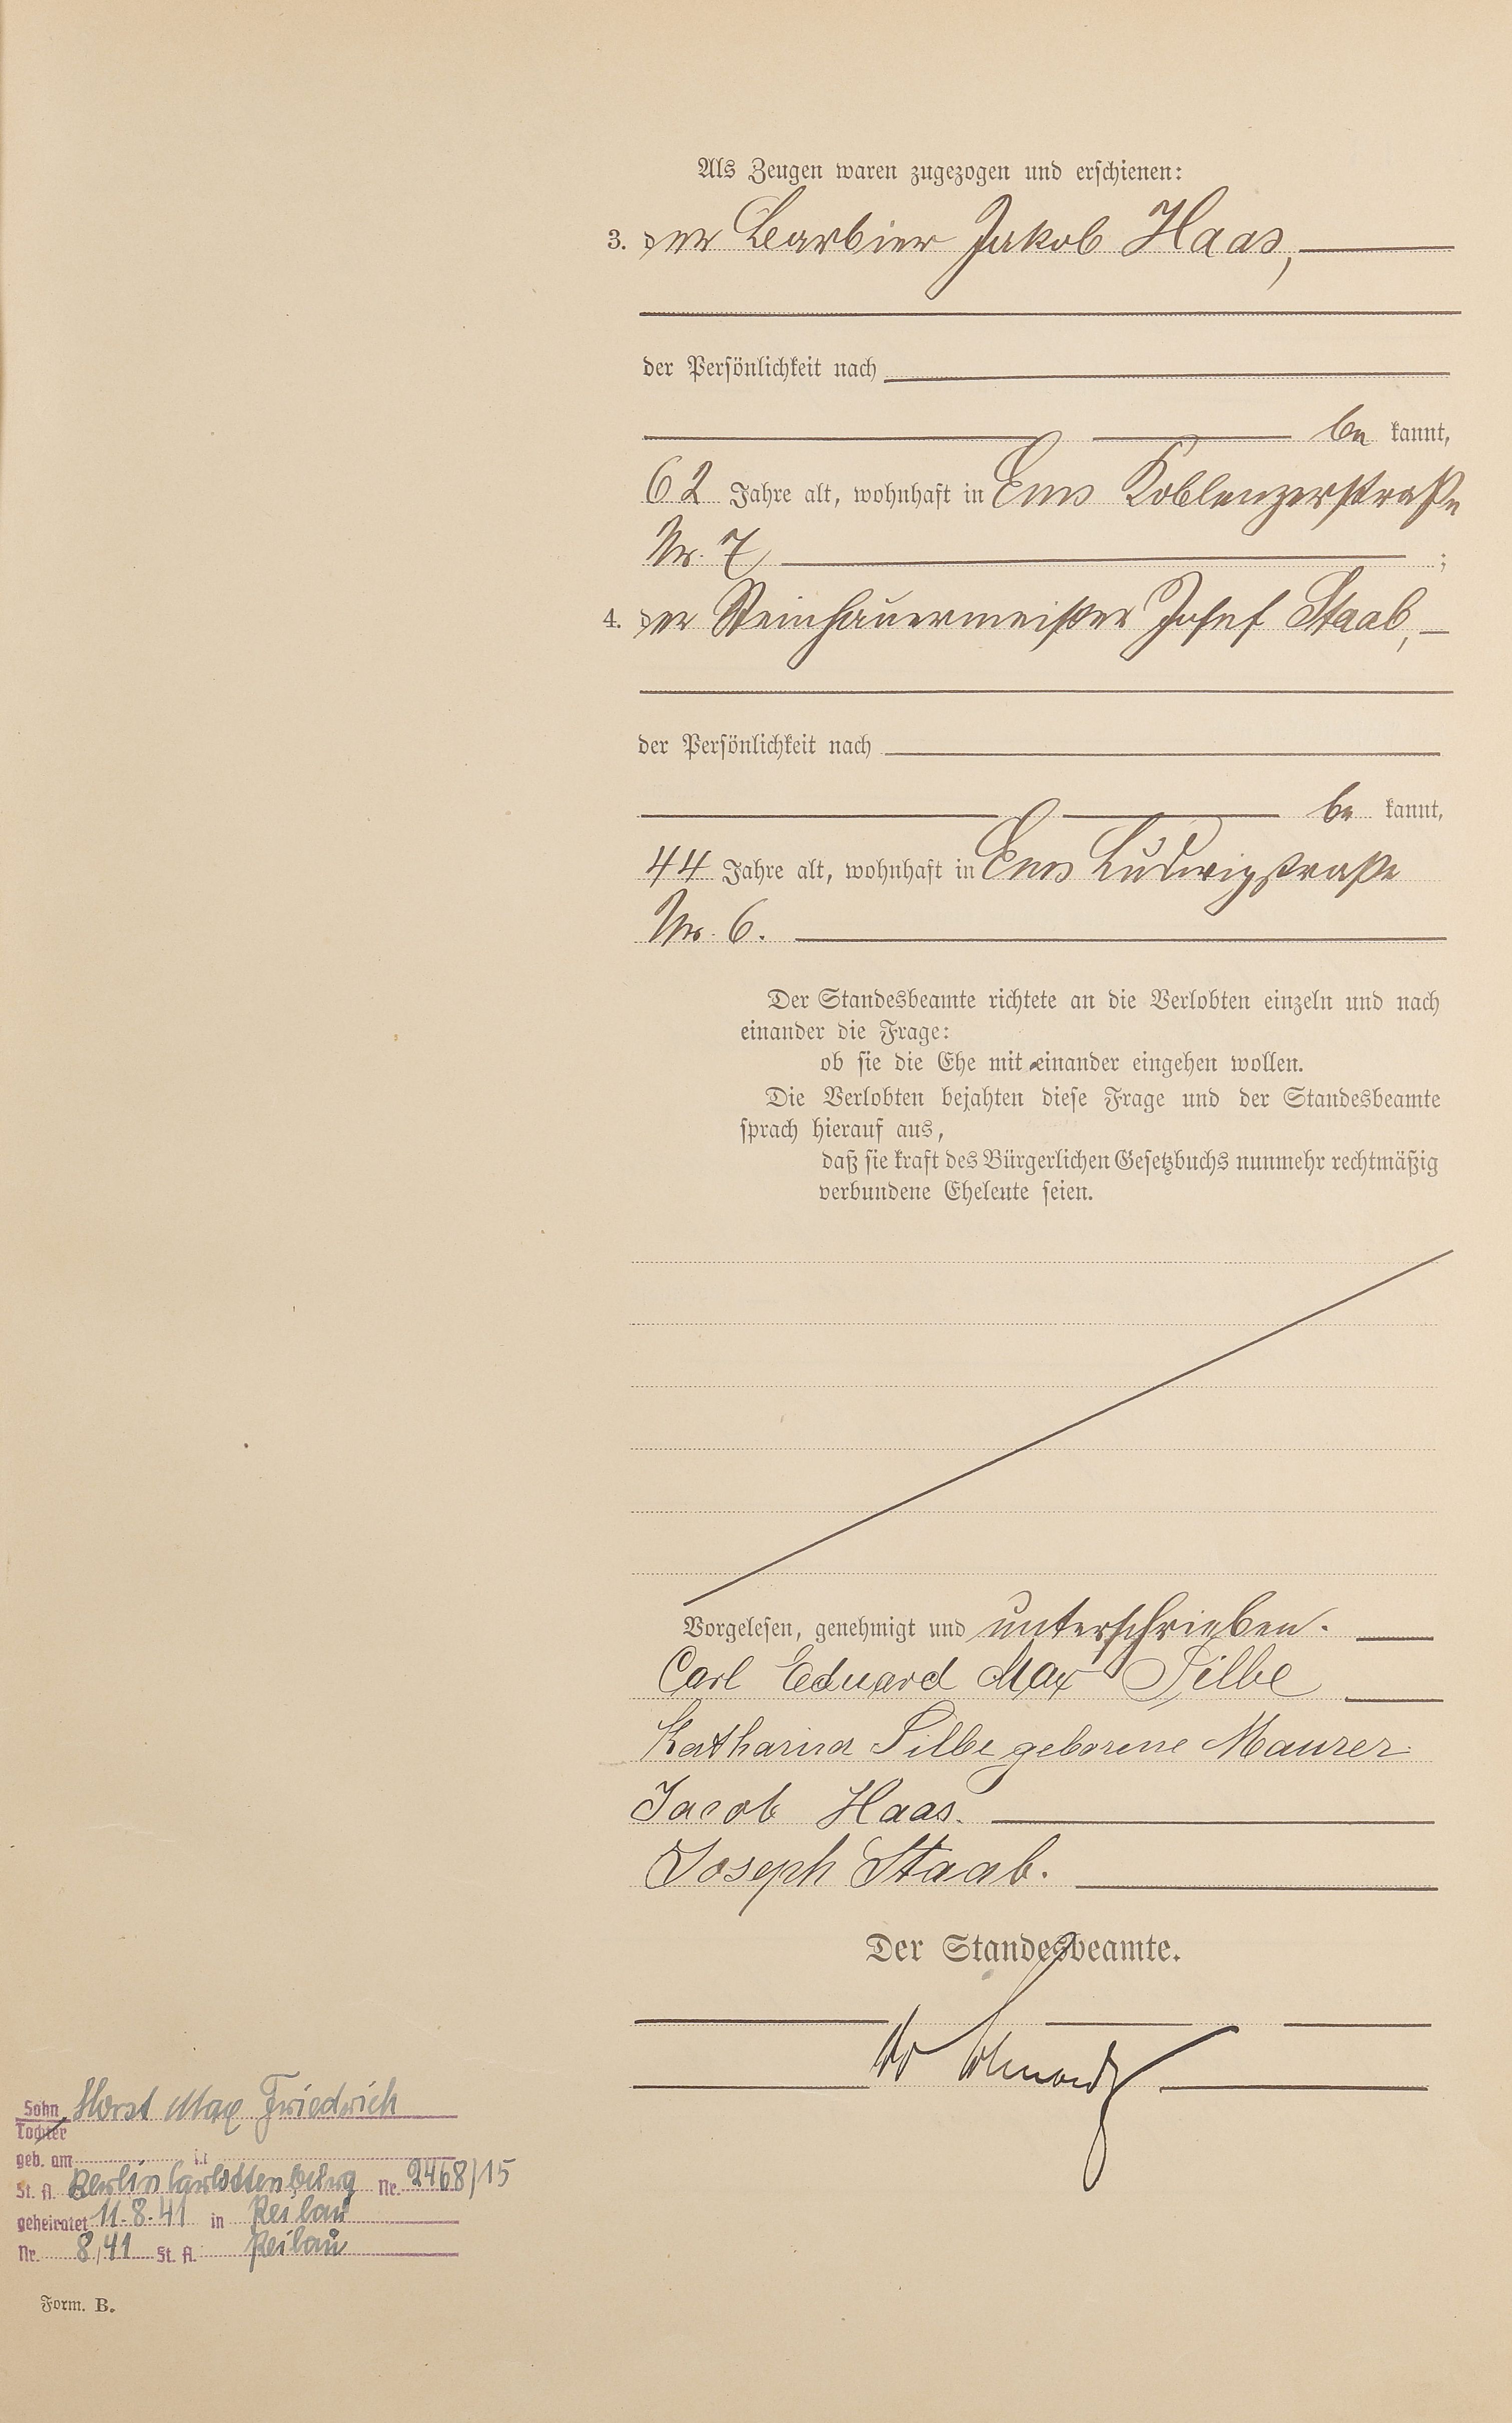 Als Zeugen waren zugezogen und erschienen:
3. der Barbier Jakob Haas,
der Persönlichkeit nach
be kannt,
62 Jahre alt, wohnhaft in Ems Koblenzerstraße
Nr. 7 ;
4. der Steinhauermeister Josef Staab,
der Persönlichkeit nach
be kannt,
44 Jahre alt, wohnhaft in Ems Ludwigstraße
Nr. 6.
Der Standesbeamte richtete an die Verlobten einzeln und nach
einander die Frage:
ob sie die Ehe mit einander eingehen wollen.
Die Verlobten bejahten diese Frage und der Standesbeamte
sprach hierauf aus,
daß sie kraft des Bürgerlichen Gesetzbuchs nunmehr rechtmäßig
verbundene Eheleute seien.
Vorgelesen, genehmigt und unterschrieben.
Carl Eduard Max Silbe
Katharina Silbe geborene Maurer
Jacob Haas.
Joseph Staab.
Der Standesbeamte.
Sohn Horst Max Friedrich
Tochter
geb. am in
St. A. Berlin Carlottenburg Nr. 2468/15
geheiratet 11.8.41 in Reilau
Nr. 8/41 St. A. Reilau
Form. B.